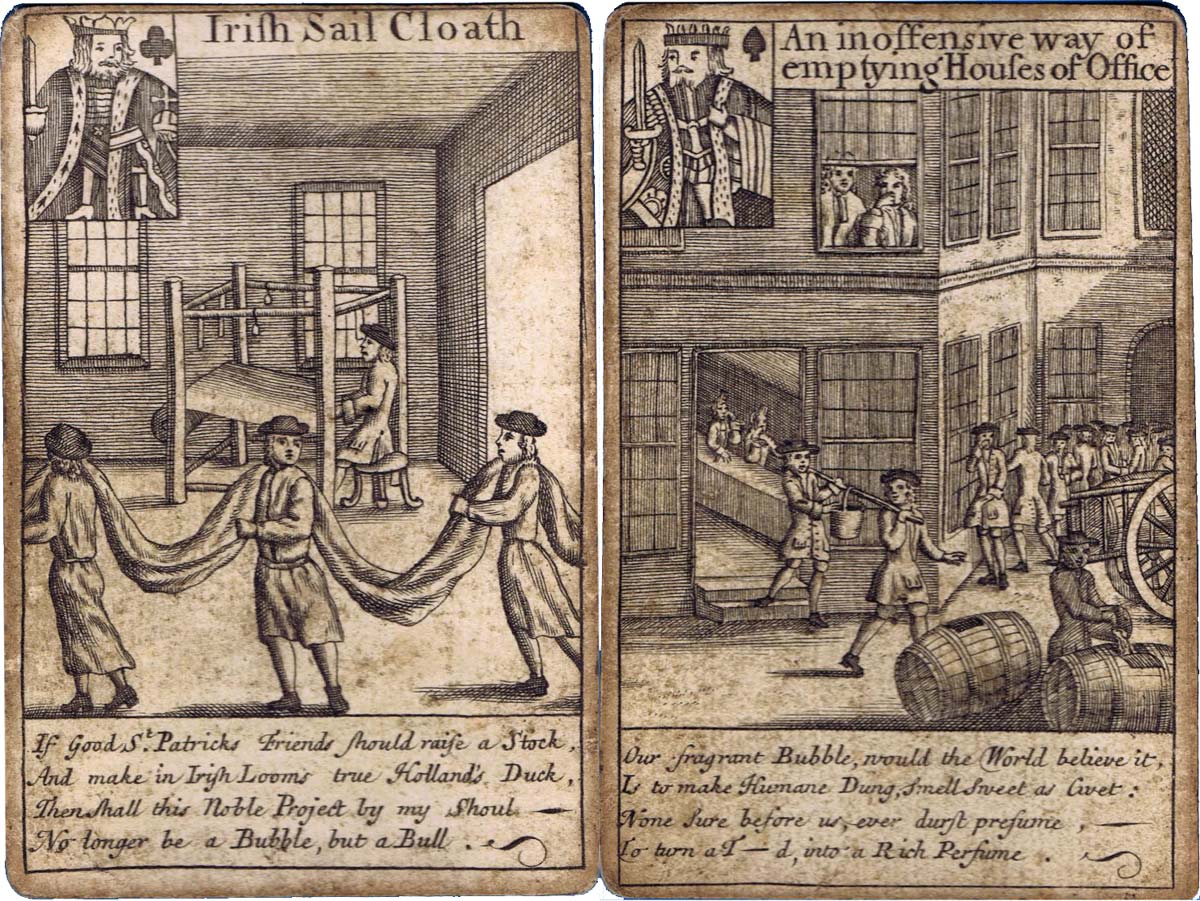 Iriſh Sail Cloath
If Good S.t Patricks Friends ſhould raiſe a Stock,
And make in Iriſh Looms true Holland's Duck,
Then ſhall this Noble Project by my Shoul —
No longer be a Bubble, but a Bull.
An inoffensive way of
emptying Houſes of Office
Our fragrant Bubble, would the World believe it,
Is to make Humane Dung, ſmell ſweet as Civet:
None ſure before us, ever durſt preſume, —
To turn a T—d, into a Rich Perfume.